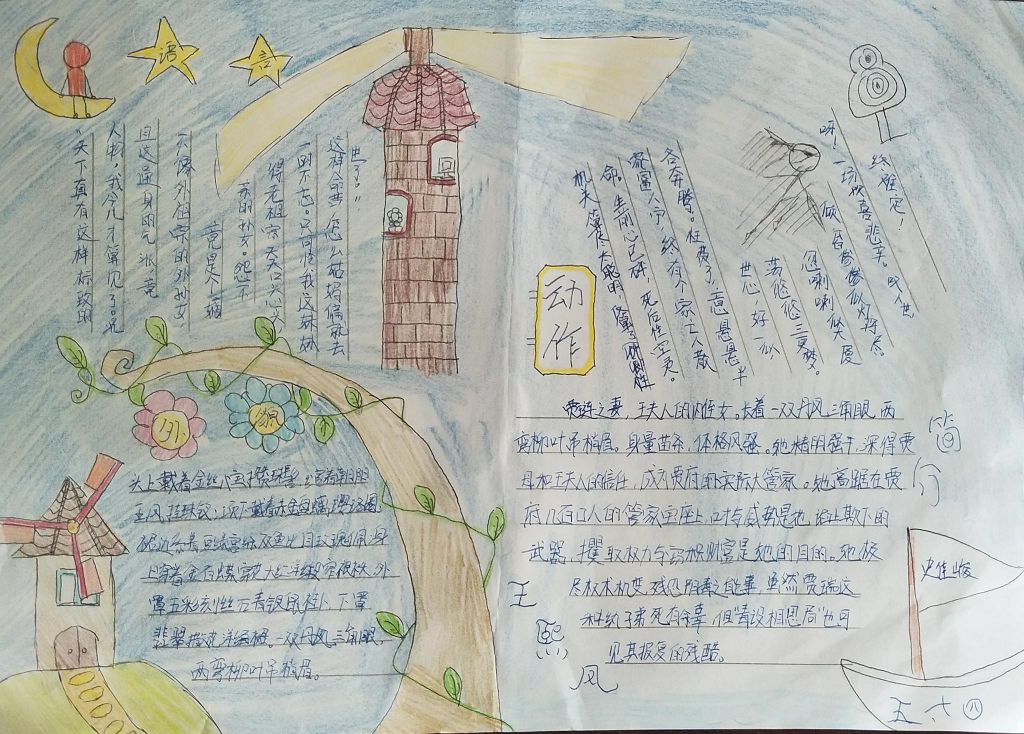 语
言
“天下真有这样标致的
人物，我今儿才算见了。况
且这通身的气派，竟
不像外祖宗的外孙女
竟是个嫡
亲的孙女。怨不
得老祖宗天天口头心头
一时不忘。只可怜我这妹妹
这样命苦，怎么姑妈偏就去
世了！”
机关算尽太聪明，反算了卿卿性
命。生前心已碎，死后性空灵。
家富人宁，终有个家亡人散
各奔腾。枉费了，意悬悬半
世心，好一似
荡悠悠三更梦。
忽喇喇似大厦
倾 昏惨惨似灯将尽。
呀！一场欢喜悲辛。叹人世
终难定！
动
作
外
貌
头上戴着金丝八宝攒珠髻，绾着朝阳
五凤挂珠钗；项下戴着赤金盘螭璎珞圈
裙边系着豆绿宫绦双鱼比目玫瑰佩，身
上穿着金百蝶穿花大红洋缎窄裉袄，外
罩五彩刻丝石青银鼠褂，下罩
翡翠撒花洋绉裙。一双丹凤三角眼，
两弯柳叶吊梢眉。
简
介
贾琏之妻，王夫人的内侄女。长着一双丹凤三角眼，两
弯柳叶吊梢眉，身量苗条，体格风骚。她精明强干，深得贾
母和王夫人的信任，成为贾府的实际大管家。她高踞在贾
府几百口人的管家宝座上，口才与威势是她谄上欺下的
武器，攫取权力与窃积财富是她的目的。她极
尽权术机变，残忍阴毒之能事，虽然贾瑞这
种纨绔子弟死有余辜，但“毒设相思局”也可
见其报复的残酷。
王
熙
凤
史佳璇
五.六 四